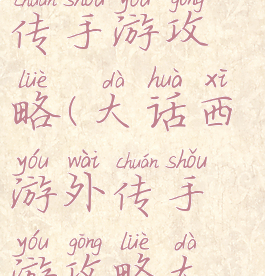 chuán shǒu yóu gōng
传手游攻
lüè dà huà xī
略(大话西
yóu wài chuán shǒu
游外传手
yóu gōng lüè dà
游攻略大